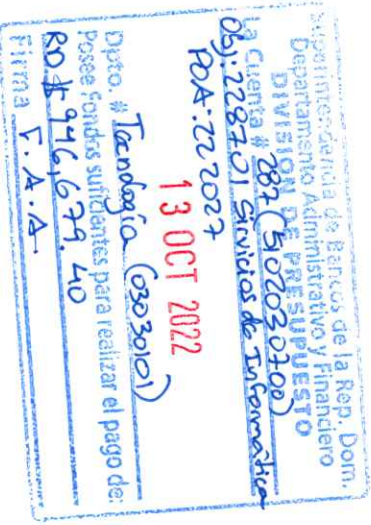 Superintendencia de Bancos de la Rep. Dom.
Departamento Administrativo y Financiero
DIVISION DE PRESUPUESTO
La Cuenta # 287 (5102030700)
Obj: 228701 Sirvicios de Informática
POA: 22 2027
13 OCT 2022
Dpto. # Tecnología (03030101)
Posee fondos suficientes para realizar el pago de:
RD $ 946,679.40
Firma F.A.A.